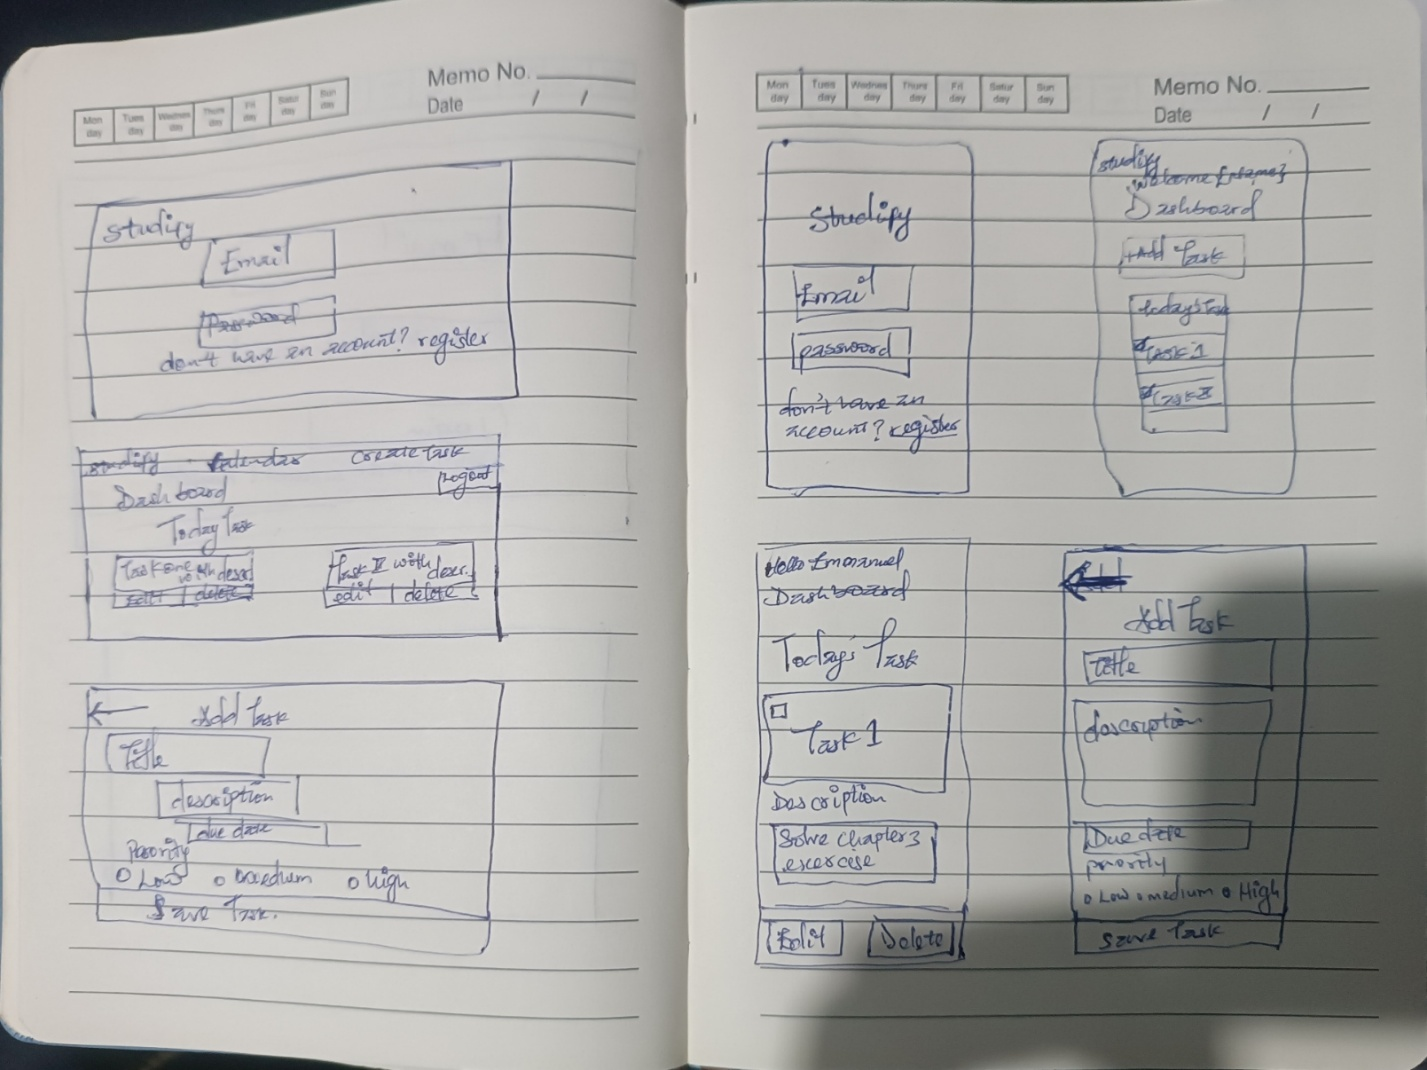 Mon day Tues day Wednes day Thurs day Fri day Satur day Sun day
Memo No.
Date / /
Studify
Email
Password
don't have an account? register
Studify Calendar Create Task
Logout
Dashboard
Today Task
Task one with descr
edit delete
Task II with descr.
edit delete
Add Task
Title
description
due date
Priority
Low medium high
Save Task.
Mon day Tues day Wednes day Thurs day Fri day Satur day Sun day
Memo No.
Date / /
Studify
Email
password
don't have an
account? register
Studify
Welcome {Name}
Dashboard
+Add Task
today's Task
Task 1
Task II
Hello Emmanuel
Dashboard
Today's Task
Task 1
Description
Solve chapter 3
exercise
Edit Delete
Add Task
title
description
Due date
priority
Low medium High
Save Task